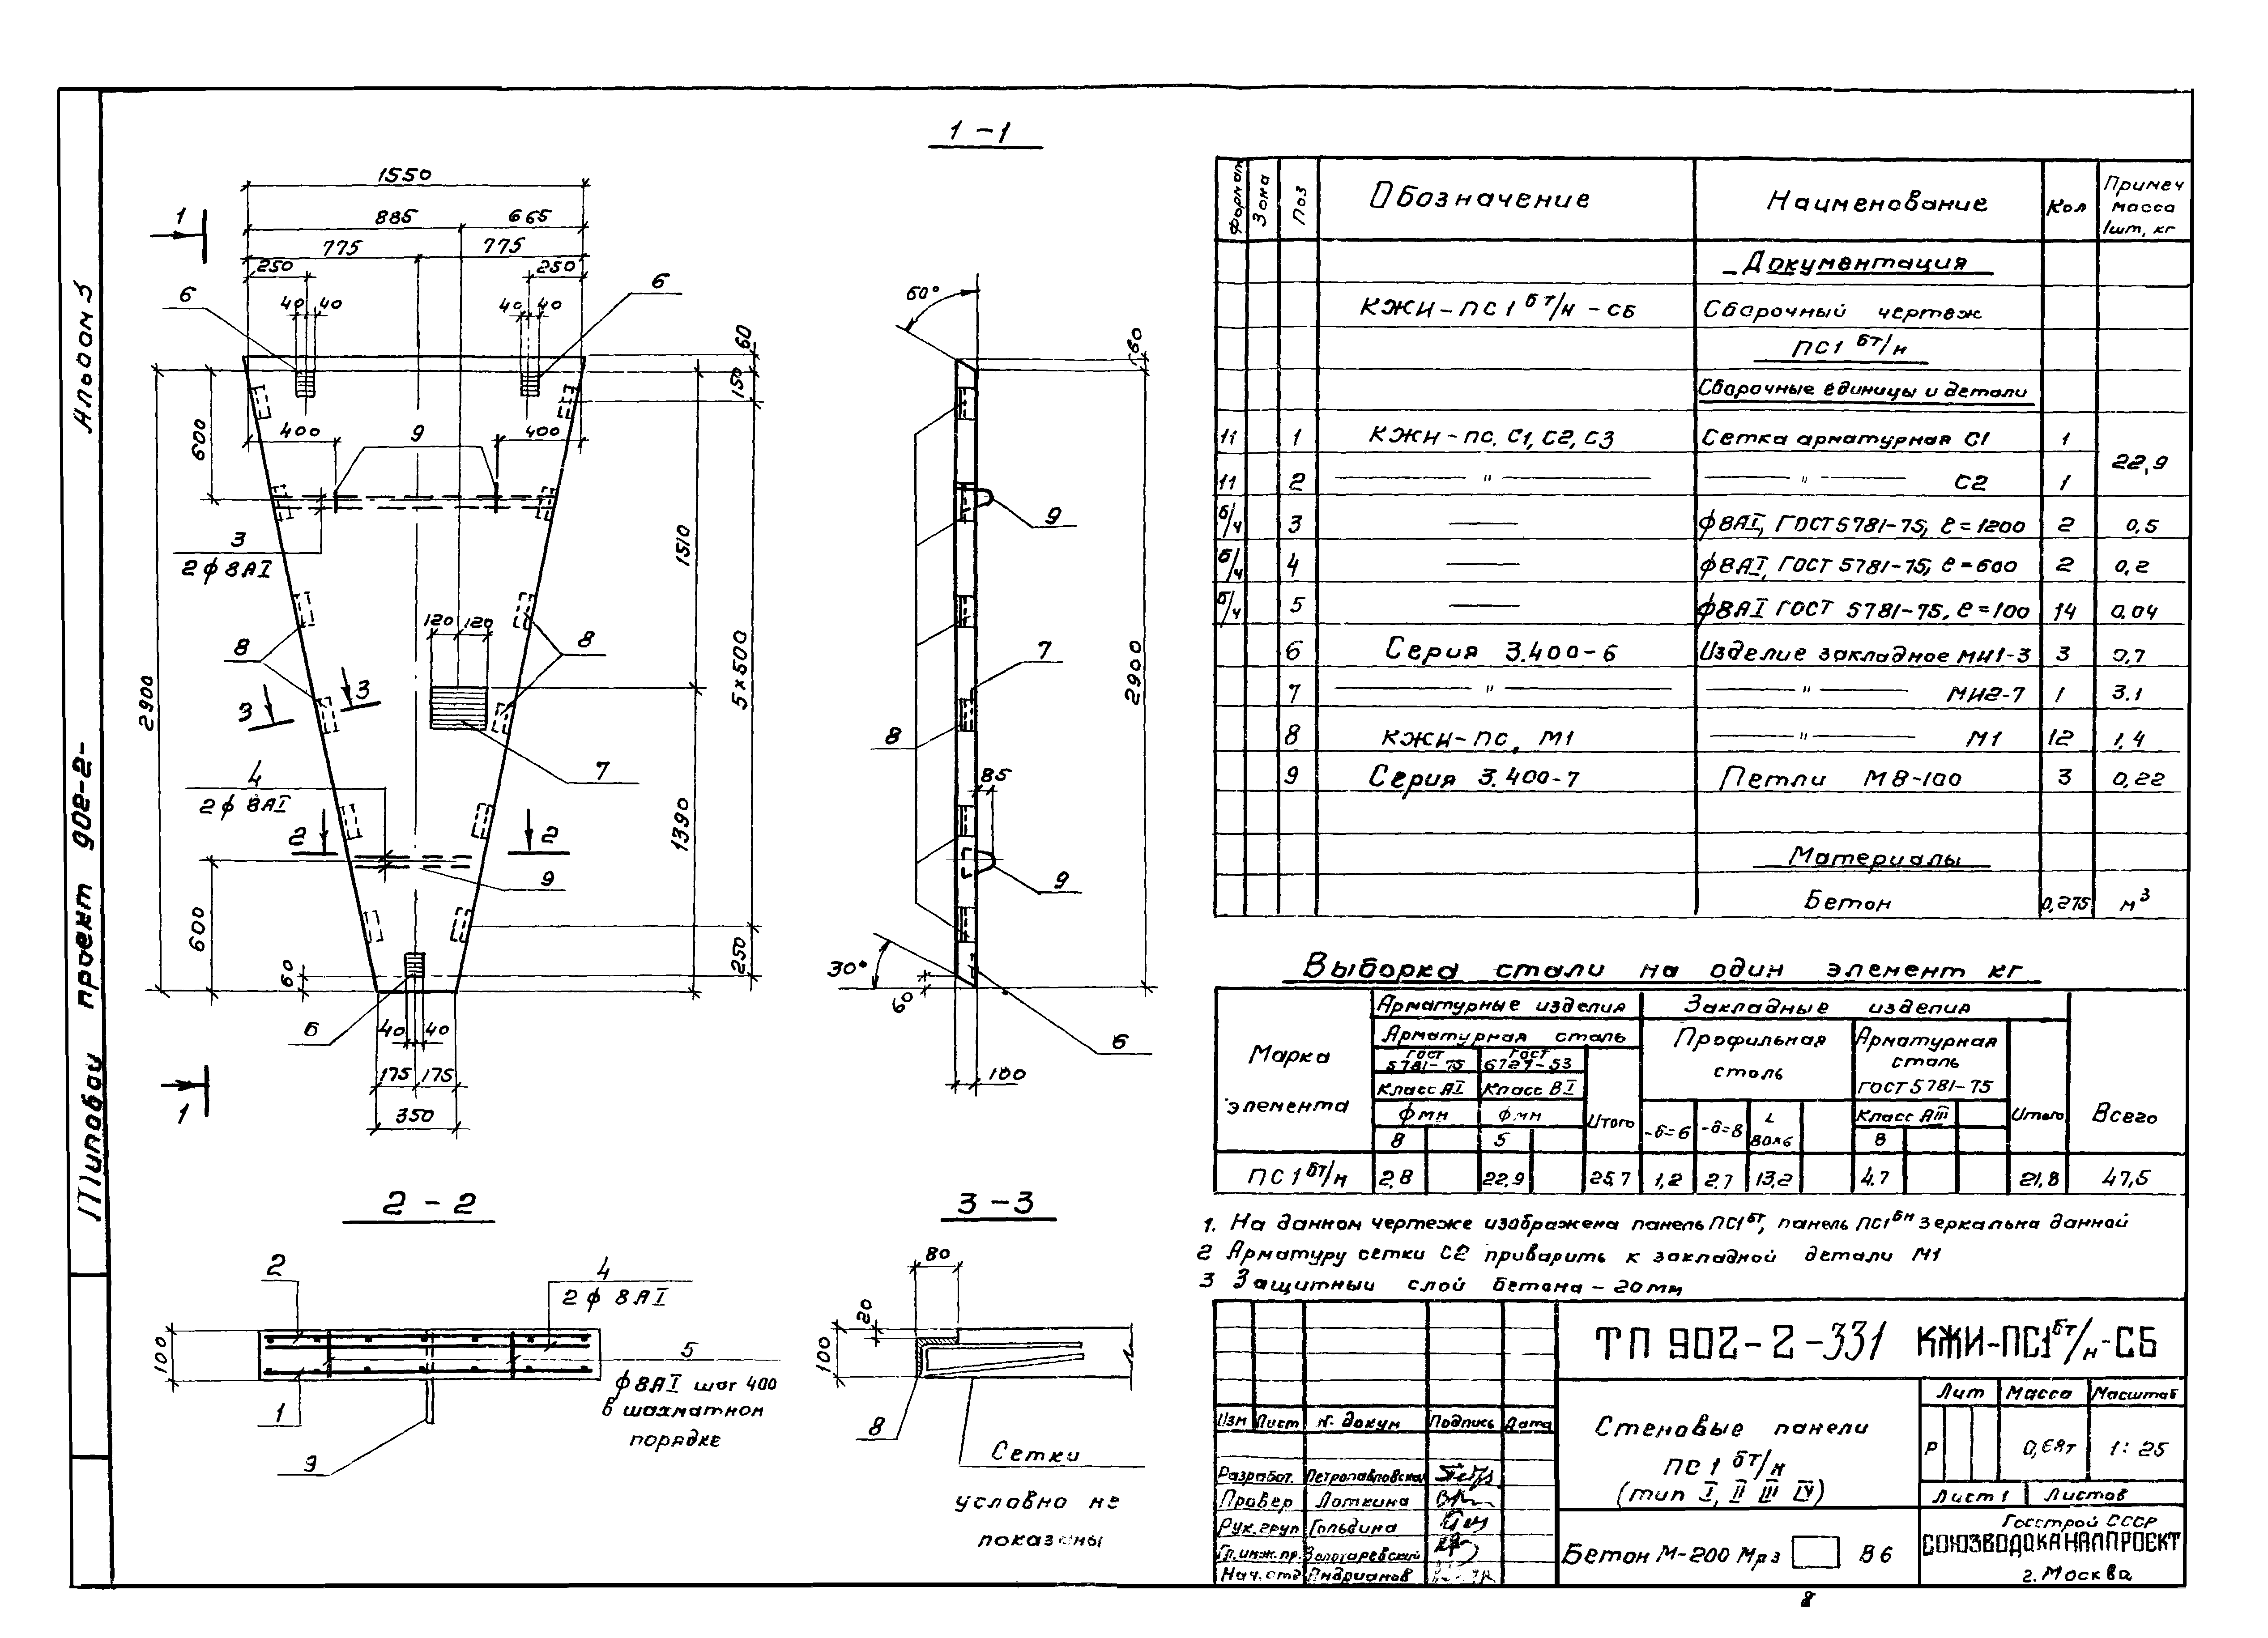 Альбом 5
Типовой проект 902-2-
1 - 1
1550
885 665
775 775
250 250
40 40 40 40
6 6
1
60
150
600
400 9 400
3
2ф8АI
1510
5×500
120 120
8 8
2900
3 3
7
4
2ф8АI
2 2
1390
9
600
60
250
6
40 40
175 175
350
1
60°
60
9
7
2900
8
85
9
30°
60
6
100
2 - 2
2
4
2ф 8АI
100
5
ф8АI шаг 400
в шахматном
порядке
1
9
3 - 3
80
20
100
8
Сетки
условно не
показаны
Формат Зона Поз Обозначение Наименование Кол Примеч масса 1шт, кг
Документация
КЖИ-ПС1 бт/н -СБ Сборочный чертеж
ПС1 бт/н
Сборочные единицы и детали
11 1 КЖИ-ПС, С1, С2, С3 Сетка арматурная С1 1
22,9
11 2 —— " —— —— " —— С2 1
б/ч 3 —— ф8АI, ГОСТ 5781-75, ℓ=1200 2 0,5
б/ч 4 —— ф8АI, ГОСТ 5781-75, ℓ=600 2 0,2
б/ч 5 —— ф8АI ГОСТ 5781-75, ℓ=100 14 0,04
6 Серия 3.400-6 Изделие закладное МИ1-3 3 0,7
7 —— " —— —— " —— МИ2-7 1 3.1
8 КЖИ-ПС, М1 —— " —— М1 12 1,4
9 Серия 3.400-7 Петли М8-100 3 0,22
Материалы
Бетон 0,275 м³
Выборка стали на один элемент кг
Марка элемента
Арматурные изделия Закладные изделия
Арматурная сталь Профильная сталь Арматурная сталь ГОСТ 5781-75
ГОСТ 5781-75 ГОСТ 6727-53
Класс АI Класс ВI Класс АIII
ф мм ф мм Итого -δ=6 -δ=8 L 80×6 Итого Всего
8 5 8
ПС1 бт/н 2,8 22,9 25,7 1,2 2,7 13,2 4,7 21,8 47,5
1. На данном чертеже изображена панель ПС1бт, панель ПС1бн зеркальна данной
2 Арматуру сетки С2 приварить к закладной детали М1
3 Защитный слой бетона - 20мм
ТП 902-2-331 КЖИ-ПС1бт/н-СБ
Изм Лист № докум Подпись Дата
Разработ. Петропавловская
Провер Лоткина
Рук.груп Гольдина
Гл.инж.пр. Золотаревский
Нач.отд Андрианов
Стеновые панели
ПС1 бт/н
(тип I, II III IV)
Лит Масса Масштаб
Р 0,68т 1:25
Лист 1 Листов
Бетон М-200 Мрз В6
Госстрой СССР
СОЮЗВОДОКАНАЛПРОЕКТ
г. Москва
8